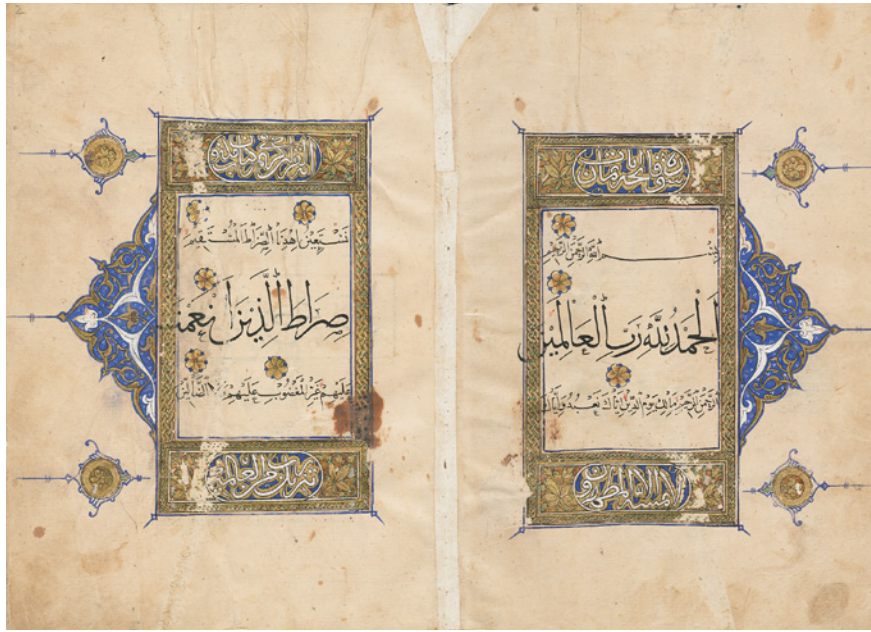 بِسْمِ اللَّهِ الرَّحْمَنِ الرَّحِيمِ
اَلْحَمْدُ لِلَّهِ رَبِّ الْعَالَمِيْنَ
الرَّحْمَنِ الرَّحِيمِ مَالِكِ يَوْمِ الدِّيْنِ اِيَّاكَ نَعْبُدُ وَاِيَّاكَ
لا يمسه الا المطهرون
نَسْتَعِيْنُ اِهْدِنَا الصِّرَاطَ الْمُسْتَقِيْمَ
صِرَاطَ الَّذِيْنَ اَنْعَمْتَ
عَلَيْهِمْ غَيْرِ الْمَغْضُوبِ عَلَيْهِمْ وَلَا الضَّالِّيْنَ
تنزيل من رب العالمين